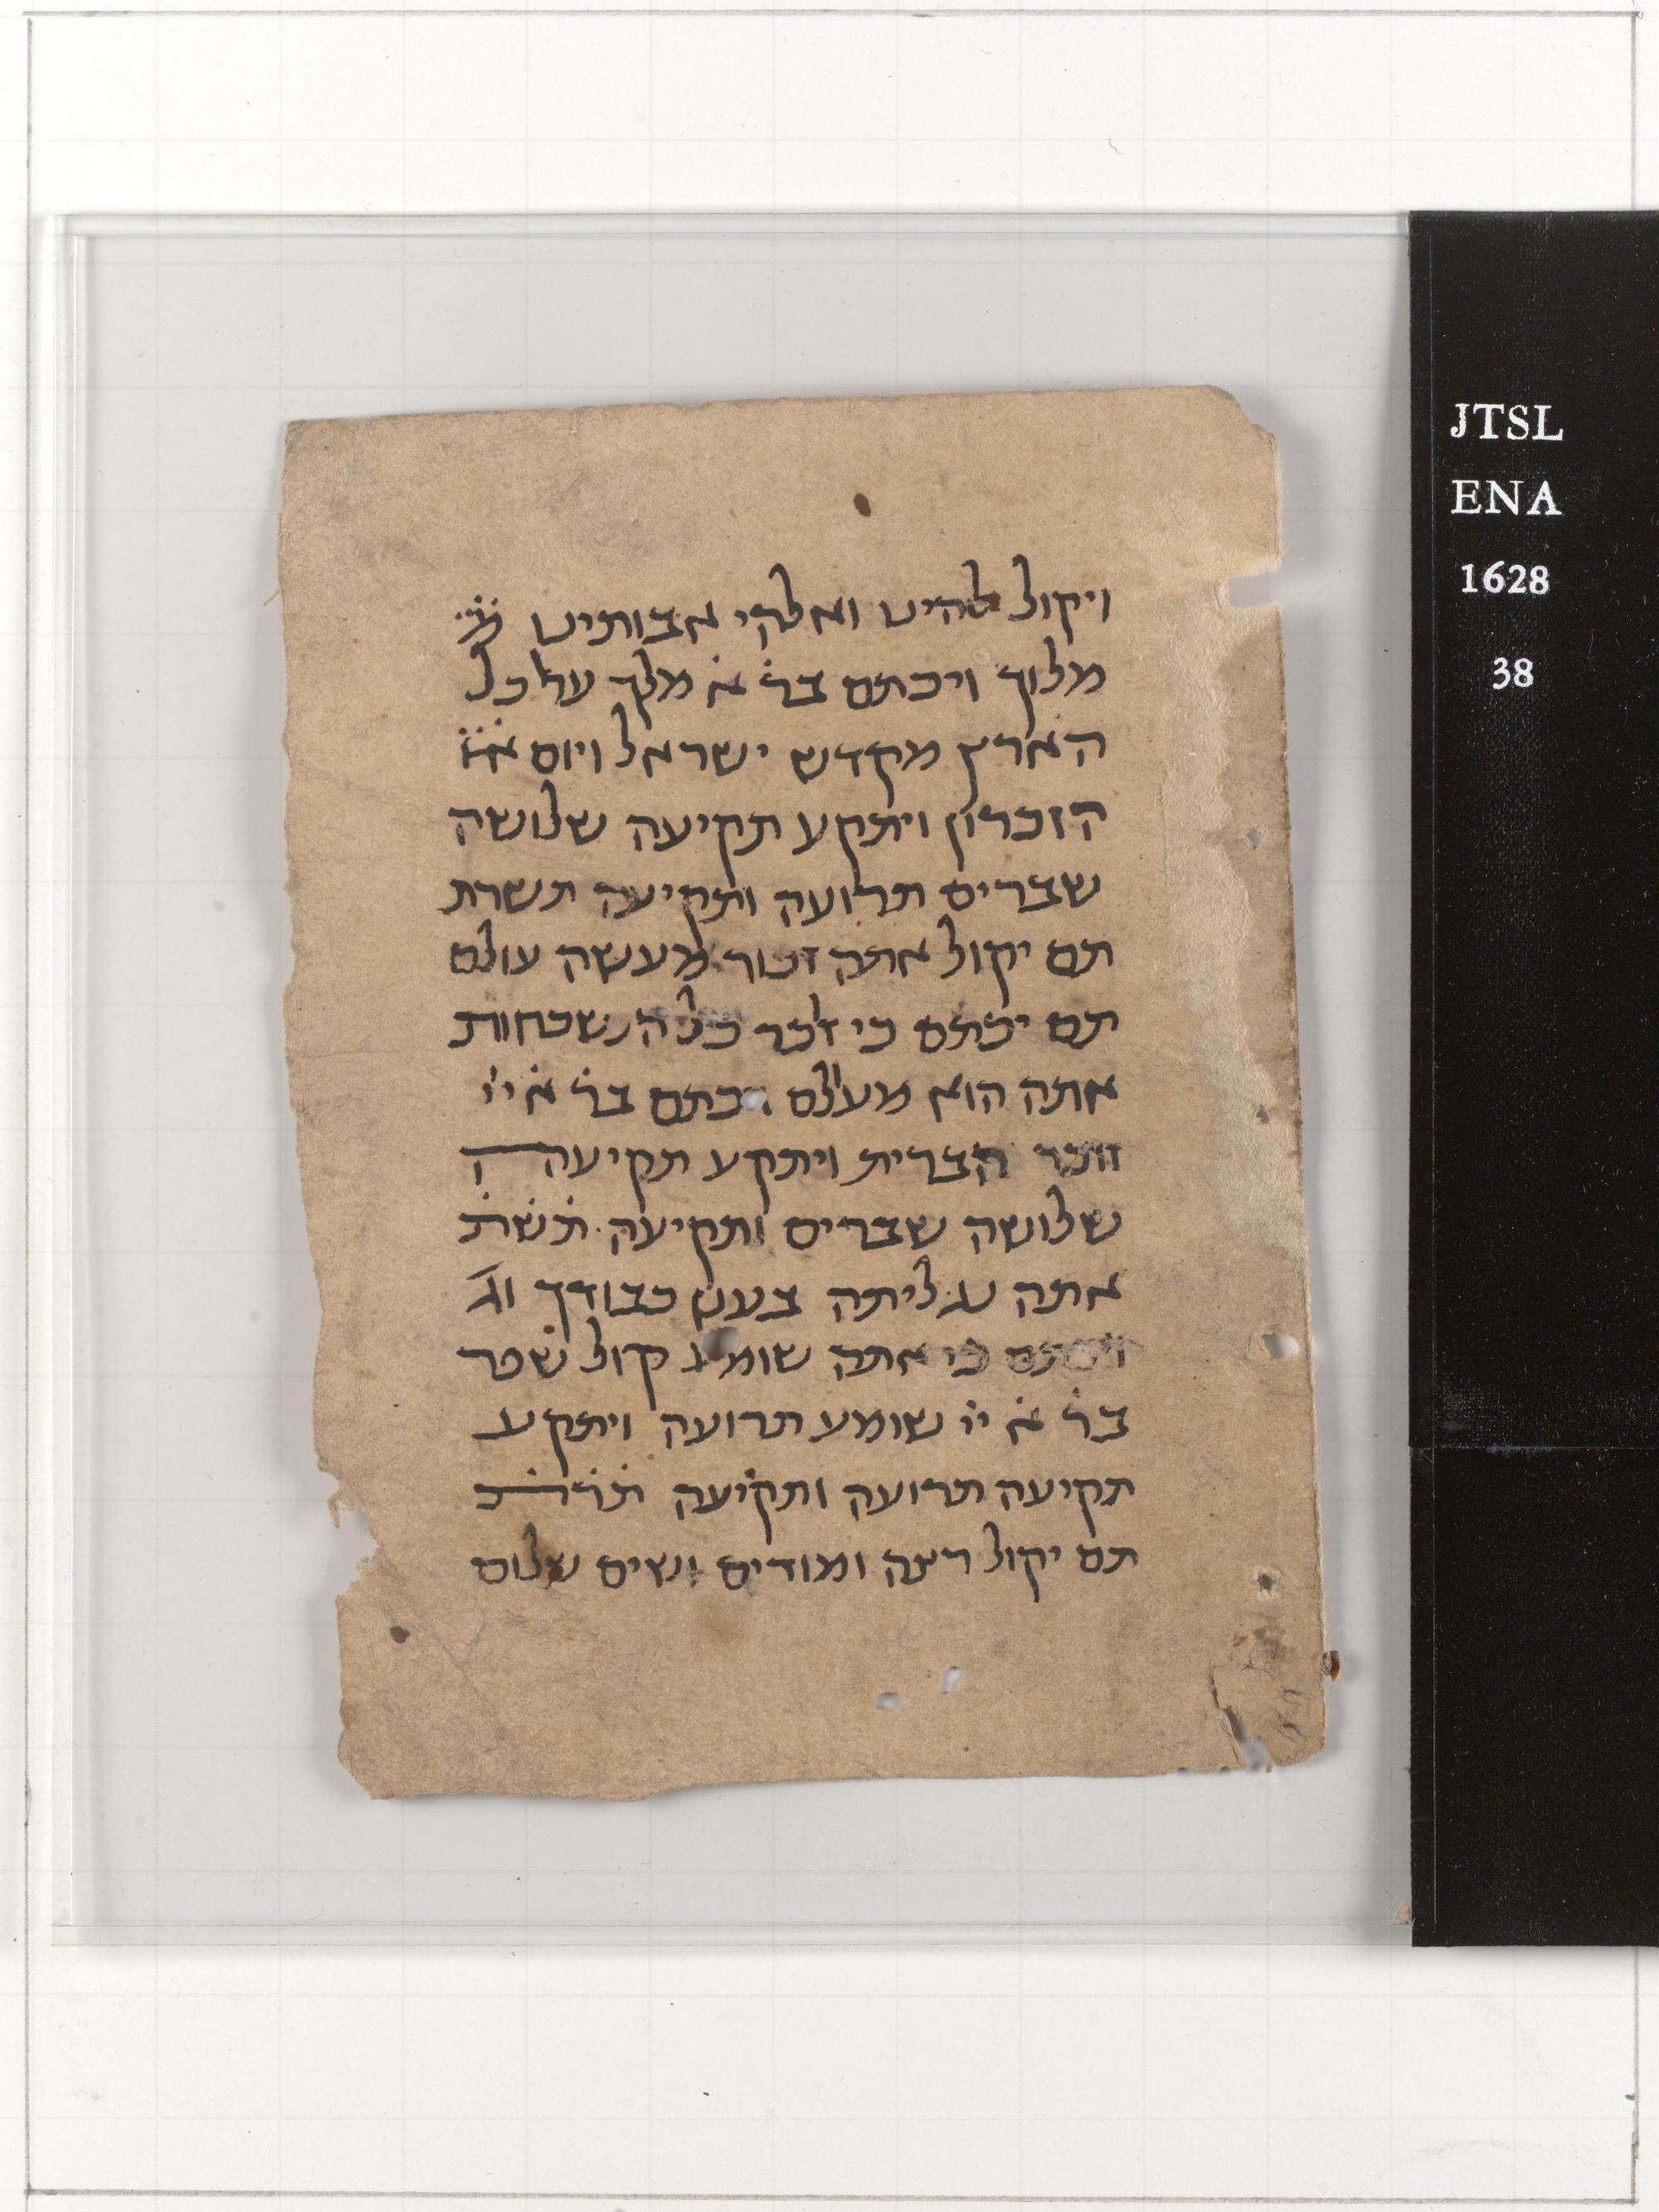 ויקול אלהינו ואלהי אבותינו מ̇
מלוך ויכתם בר̇ א̇ מלך על כל
הארץ מקדש ישראל ויום א̇
הזכרון ויתקע תקיעה שלושה
שברים תרועה ותקיעה תשרת
תם יקול אתה זכור מעשה עולם
תם יכתם כי זכר כל הנשכחות
אתה הוא מעולם ויכתם בר̇ א̇ יי
זוכר הברית ויתקע תקיעה ה
שלושה שברים ותקיעה ת̇ש̇ת̇
אתה נגליתה בענן כבודך וג̇
ויכתם כי אתה שומע קול שפר
בר̇ א̇ יי שומע תרועה ויתקע
תקיעה תרועה ותקיעה ת̇ר̇ת̇
תם יקול רצה ומודים ושים שלום
JTSL
ENA
1628
38